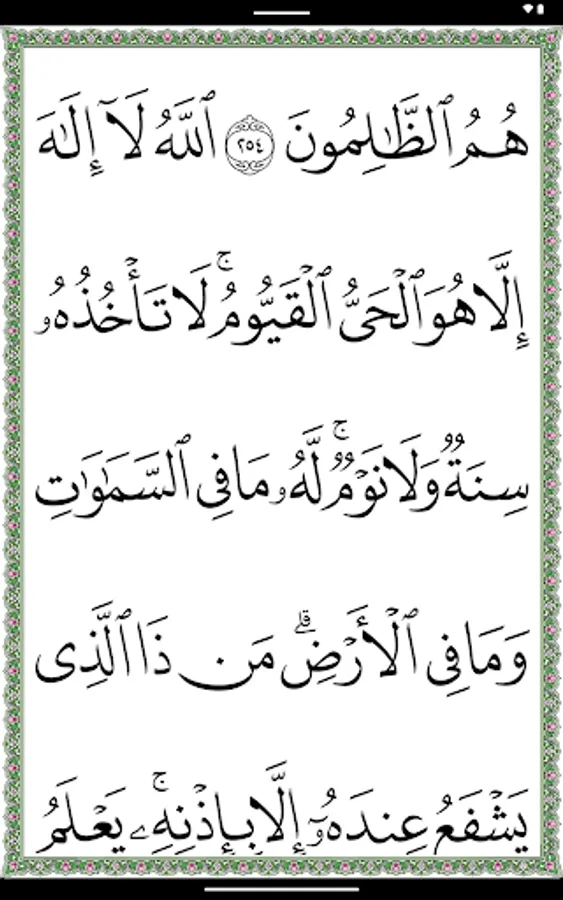 هُمُ ٱلظَّٰلِمُونَ ٢٥٤ ٱللَّهُ لَآ إِلَٰهَ
إِلَّا هُوَ ٱلْحَىُّ ٱلْقَيُّومُ ۚ لَا تَأْخُذُهُۥ
سِنَةٌ وَلَا نَوْمٌ ۚ لَّهُۥ مَا فِى ٱلسَّمَٰوَٰتِ
وَمَا فِى ٱلْأَرْضِ ۗ مَن ذَا ٱلَّذِى
يَشْفَعُ عِندَهُۥٓ إِلَّا بِإِذْنِهِۦ ۚ يَعْلَمُ